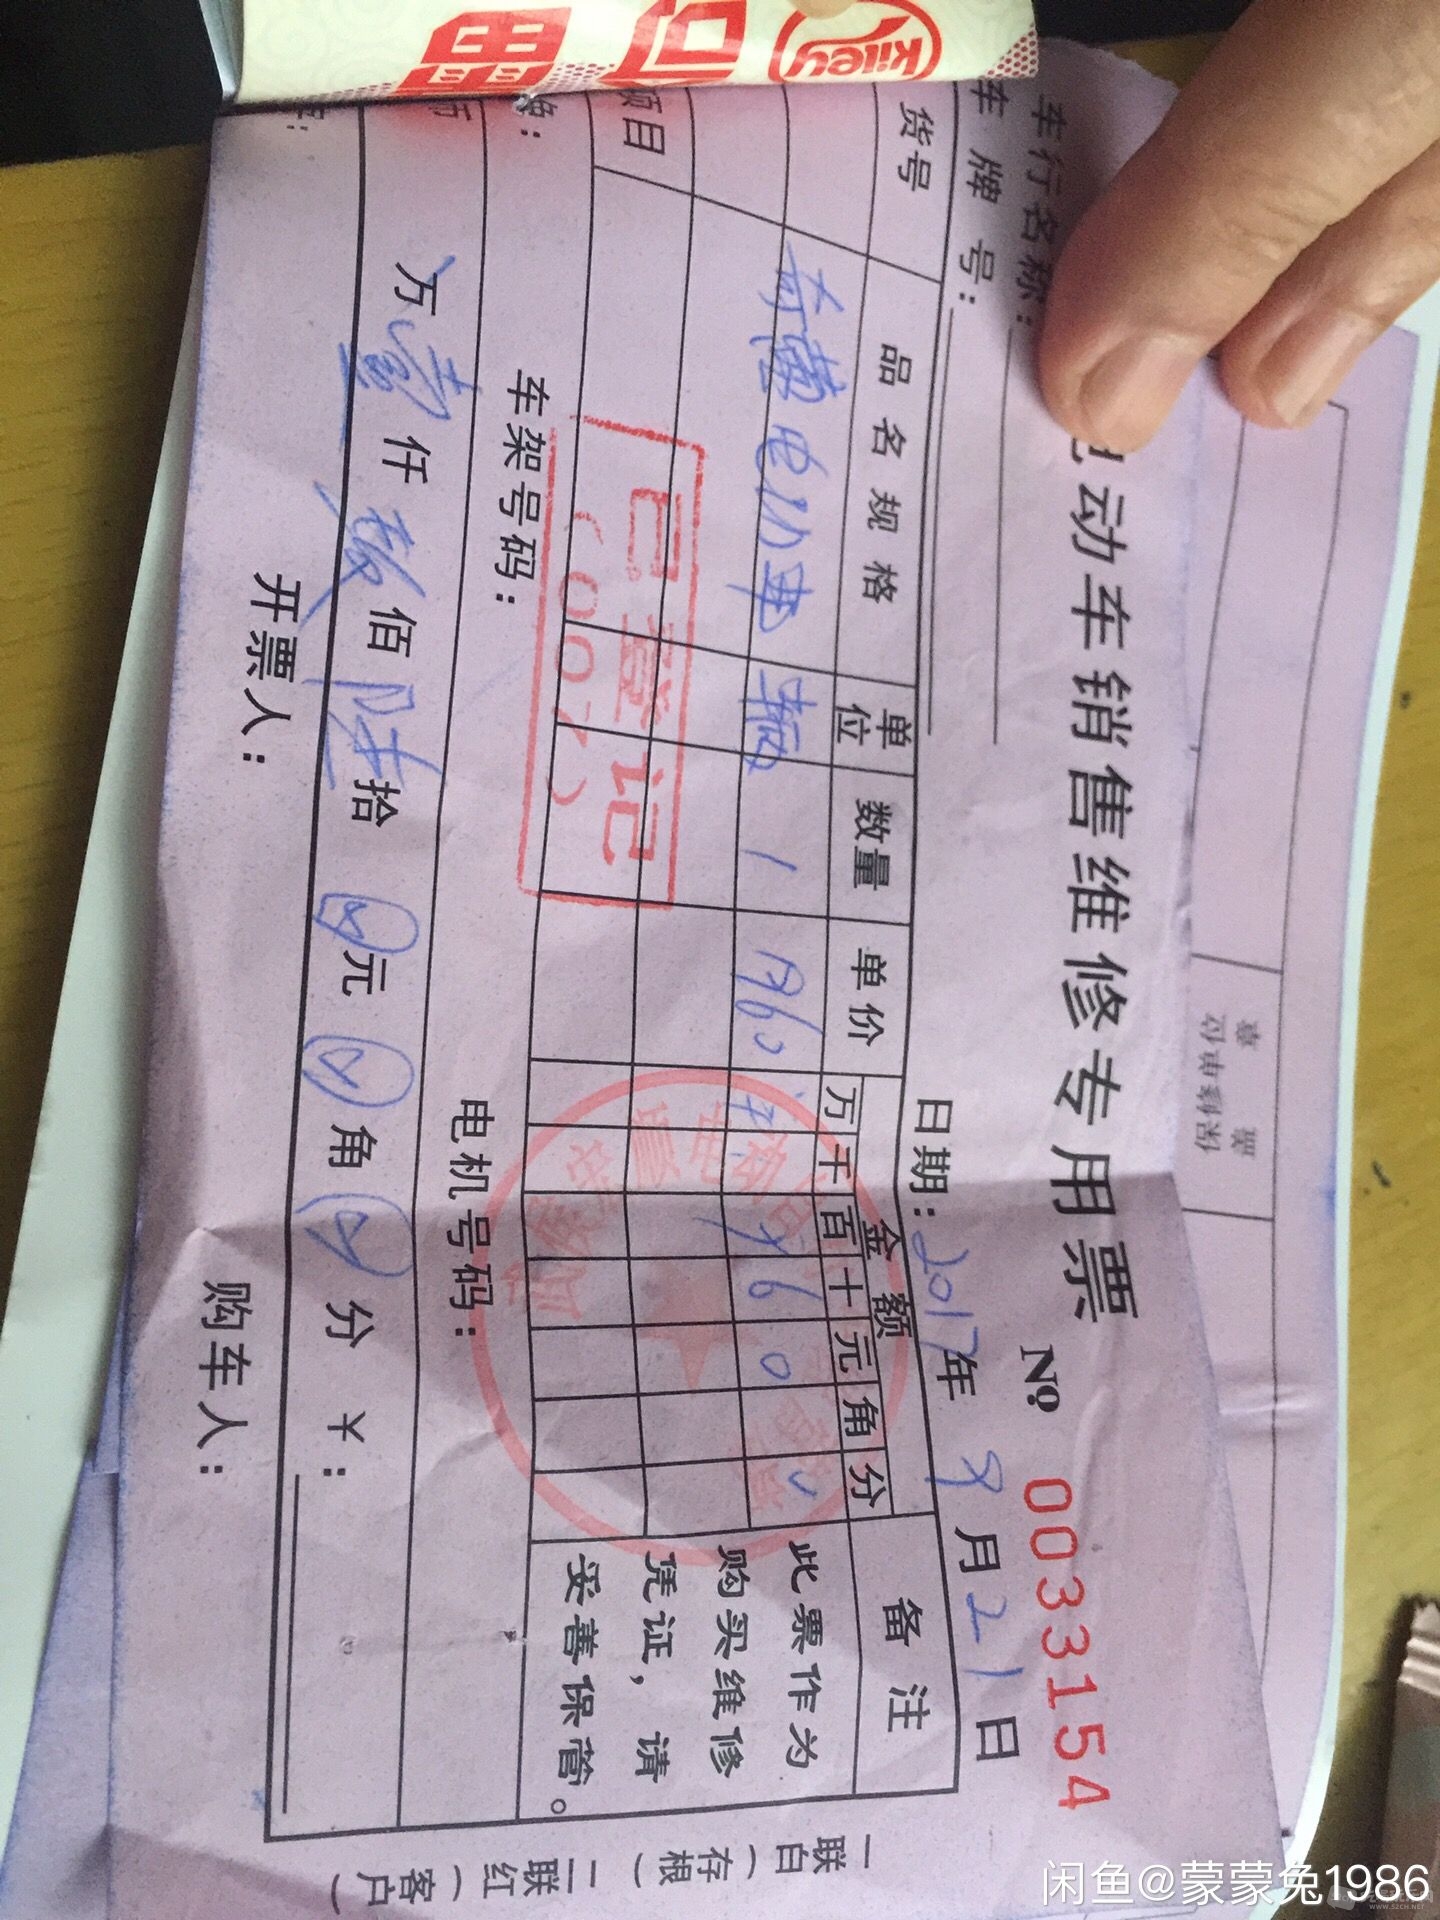 Kiley
可
电动车销售维修专用票
No 0033154
车行名称:
车牌号:
日期: 2017年 9月21日
货号 品名规格 单位 数量 单价 金额 备注
万 千 百 十 元 角 分
电动车 辆 1 1960
项目
此票作为
购买维修
凭证,请
妥善保管。
已登记
(007)
车架号码: 电机号码:
万壹仟玖佰陆拾 元 角 分 ¥:
开票人: 购车人:
一联白(存根) 二联红(客户)
盖章
保修单位
闲鱼@蒙蒙兔1986